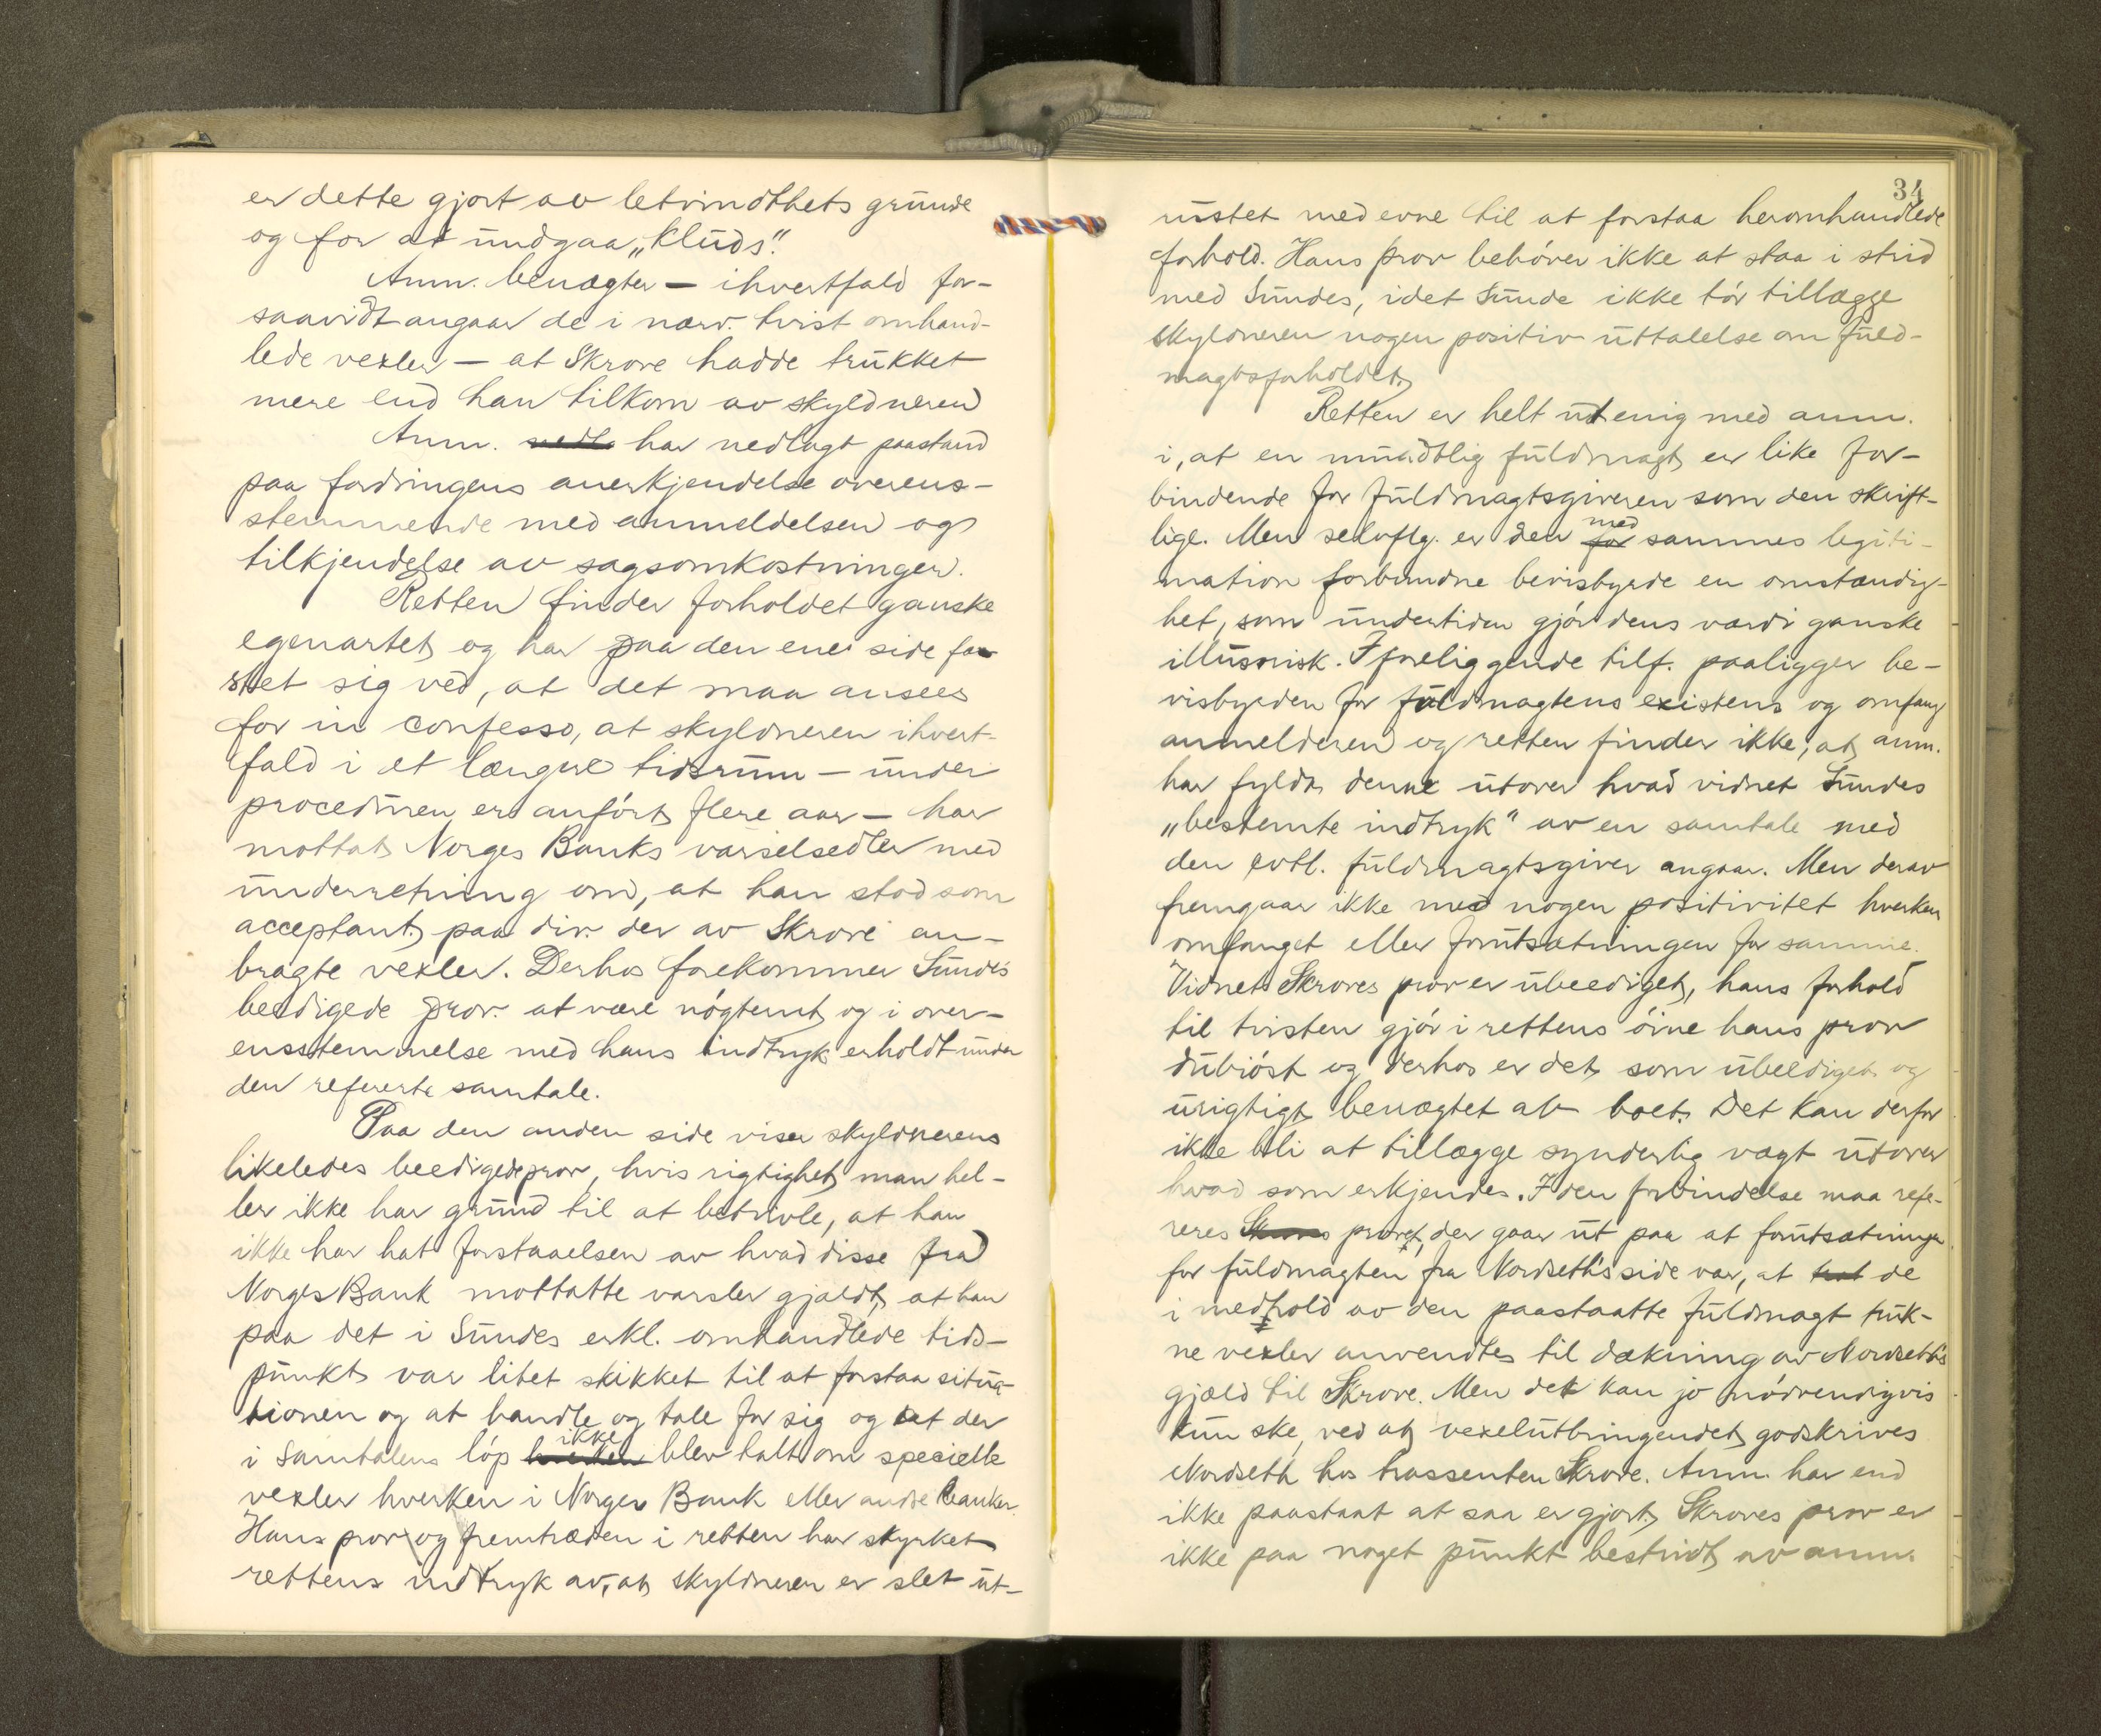 er dette gjort av letvindthets grunde
og for at undgaa „kluds".
Anm. benægter – ihvertfald for-
saavidt angaar de i nærv. tvist omhand-
lede vexler – at Skrove hadde trukket
mere end han tilkom av skyldneren
Anm. har nedlagt paastand
paa fordringens anerkjendelse overens-
stemmende med anmeldelsen og
tilkjendelse av sagsomkostninger.
Retten finder forholdet ganske
egenartet og har paa den ene side fæ
stet sig ved, at det maa ansees
for in confesso, at skyldneren ihvert-
fald i et længere tidsrum – under
proceduren er anført flere aar – har
mottat Norges Banks varselsedler med
underretning om, at han stod som
acceptant paa div. der av Skrove an-
bragte vexler. Derhos forekommer Sundes
beedigede prov. at være nøgternt og i over-
ensstemmelse med hans indtryk erholdt under
den refererte samtale.
Paa den anden side viser skyldnerens
likeledes beedigede prov, hvis rigtighet man hel-
ler ikke har grund til at betvivle, at han
ikke har hat forstaaelsen av hvad disse fra
Norges Bank mottatte varsler gjaldt, at han
paa det i Sundes erkl. omhandlede tids-
punkt var litet skikket til at forstaa situa-
tionen og at handle og tale for sig og at der
i samtalens løp ikke blev talt om specielle
vexler hverken i Norges Bank eller andre banker.
Hans prov og fremtræden i retten har styrket
rettens indtryk av, at skyldneren er slet ut-
34
rustet med evne til at forstaa heromhandlede
forhold. Hans prov behøver ikke at staa i strid
med Sundes, idet Sunde ikke tør tillægge
skyldneren nogen positiv uttalelse om fuld-
magtsforholdet.
Retten er helt ut enig med anm.
i, at en mundtlig fuldmagt er like for-
bindende for fuldmagtsgiveren som den skrift-
lige. Men selvflg. er den med sammes legiti-
mation forbundne bevisbyrde en omstændig-
het, som undertiden gjør dens værdi ganske
illusorisk. I foreliggende tilf. paaligger be-
visbyrden for fuldmagtens existens og omfang
anmelderen og retten finder ikke, at anm.
har fyldt denne utover hvad vidnet Sundes
„bestemte indtryk" av en samtale med
den evtl. fuldmagtsgiver angaar. Men derav
fremgaar ikke med nogen positivitet hverken
omfanget eller forutsætningen for samme.
Vidnet Skroves prov er ubeediget, hans forhold
til tvisten gjør i rettens øine hans prov
dubiøst og derhos er det som ubeediget og
urigtigt benægtet av boet. Det kan derfor
ikke bli at tillægge synderlig vægt utover
hvad som erkjendes. I den forbindelse maa refe-
reres provet, der gaar ut paa at forutsætningen
for fuldmagten fra Nordseth's side var, at de
i medhold av den paastaatte fuldmagt truk-
ne vexler anvendtes til dækning av Nordseth's
gjæld til Skrove. Men det kan jo nødvendigvis
kun ske, ved at vexelutbringendet godskrives
Nordseth hos trassenten Skrove. Anm. har end
ikke paastaat at saa er gjort. Skroves prov er
ikke paa noget punkt bestridt av anm.